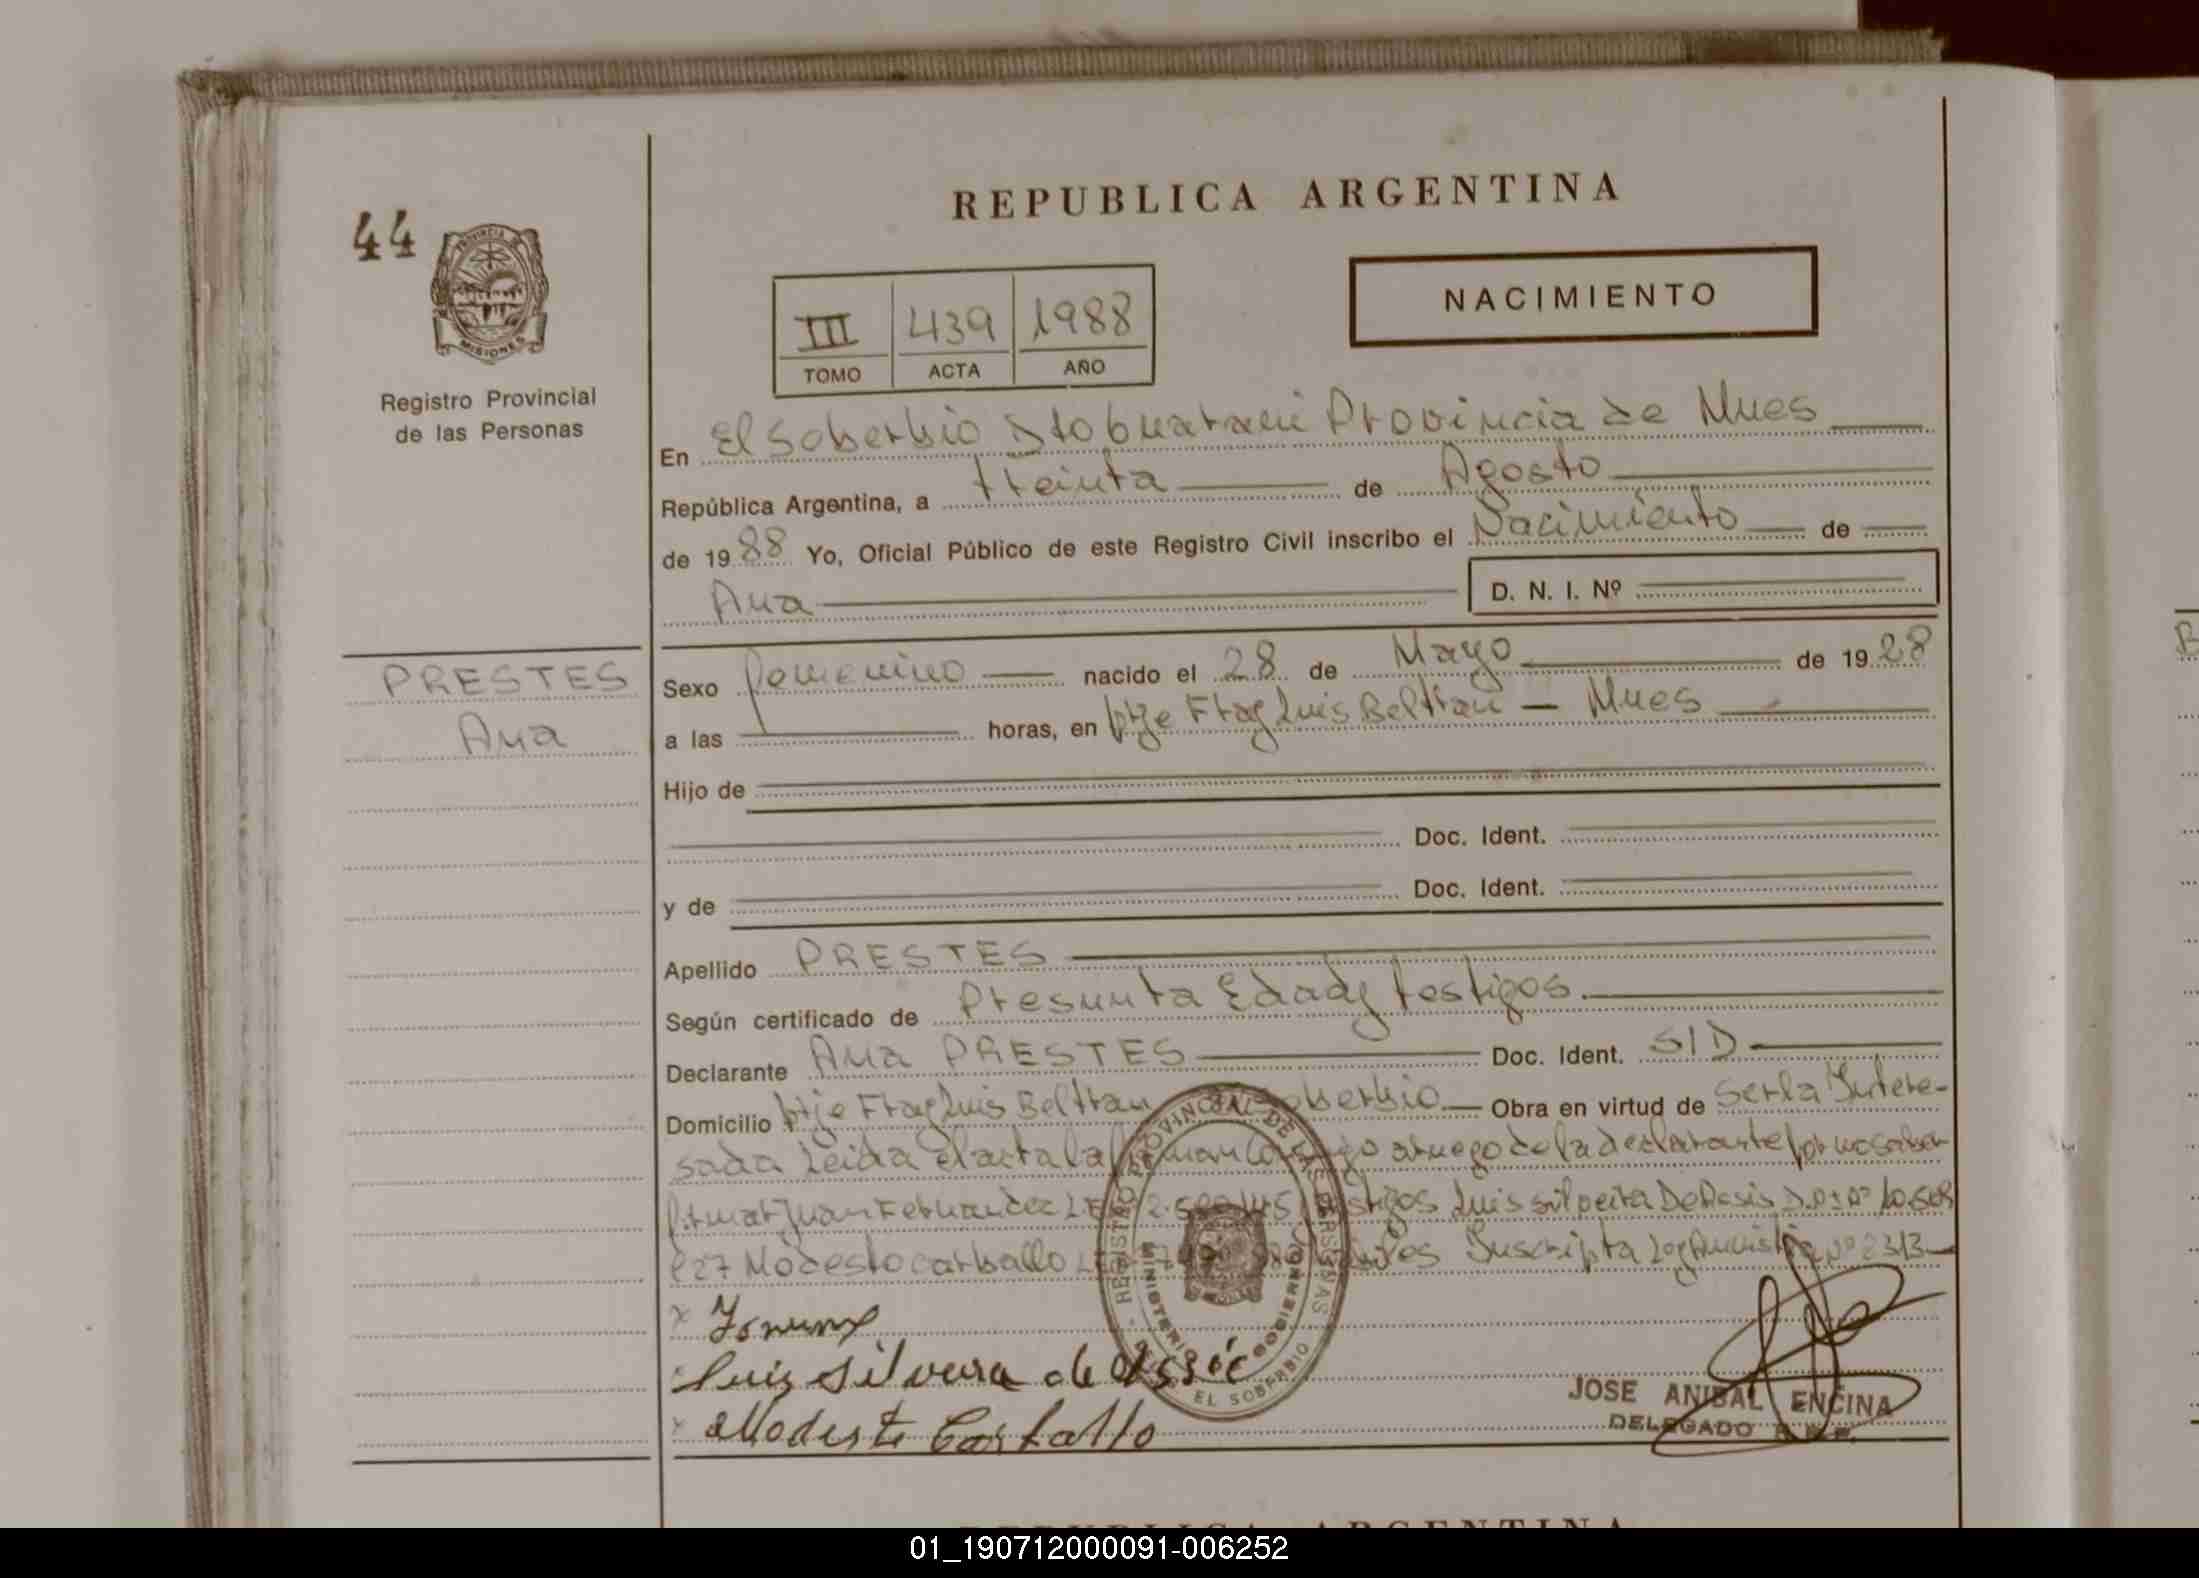 REPUBLICA ARGENTINA
44
PROVINCIA DE
MISIONES
Registro Provincial
de las Personas
NACIMIENTO
III 439 1988
TOMO ACTA AÑO
En El Soberbio Dto Guarani Provincia de Mnes
República Argentina, a treinta de Agosto
de 1988 Yo, Oficial Público de este Registro Civil inscribo el Nacimiento de
Ana D. N. I. Nº
PRESTES
Ana
Sexo femenino nacido el 28 de Mayo de 1928
a las horas, en ptje Fray Luis Beltran - Mnes
Hijo de
Doc. Ident.
y de Doc. Ident.
Apellido PRESTES
Según certificado de Presunta Edad y testigos.
Declarante Ana PRESTES Doc. Ident. S/D
Domicilio ptje Fray Luis Beltran Soberbio Obra en virtud de ser la Intere-
sada Leida el acta la firman conmigo a ruego de la declarante por no saber
firmar Juan Fernandez L.E. testigos Luis silveira De Assis D.N.I Nº 10.508
827 Modesto Carballo L.E. Inscripta Ley Amnistia Nº 2313
REGISTRO PROVINCIAL DE LAS PERSONAS
MINISTERIO GOBIERNO
EL SOBERBIO
Luiz Silveira de Assis
Modesto Carballo
JOSE ANIBAL ENCINA
DELEGADO R. P. P.
REPUBLICA ARGENTINA
01_190712000091-006252